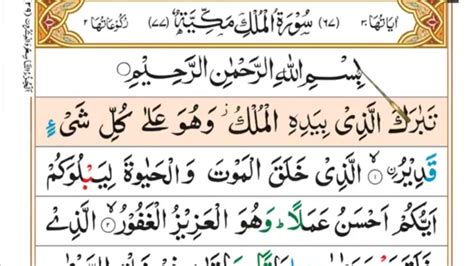 اٰیاتها ۳۰ (۶۷) سُوْرَةُ الْمُلْكِ مَكِّيَّةٌ (۷۷) رکوعاتها ۲
بِسْمِ اللهِ الرَّحْمٰنِ الرَّحِيْمِ
تَبٰرَكَ الَّذِیْ بِیَدِهِ الْمُلْكُ ز وَهُوَ عَلٰی كُلِّ شَیْءٍ
قَدِیْرُ ۙ۱ الَّذِیْ خَلَقَ الْمَوْتَ وَ الْحَیٰوةَ لِیَبْلُوَكُمْ
اَیُّكُمْ اَحْسَنُ عَمَلًا ؕ وَهُوَ الْعَزِیْزُ الْغَفُوْرُ ۙ۲ الَّذِیْ